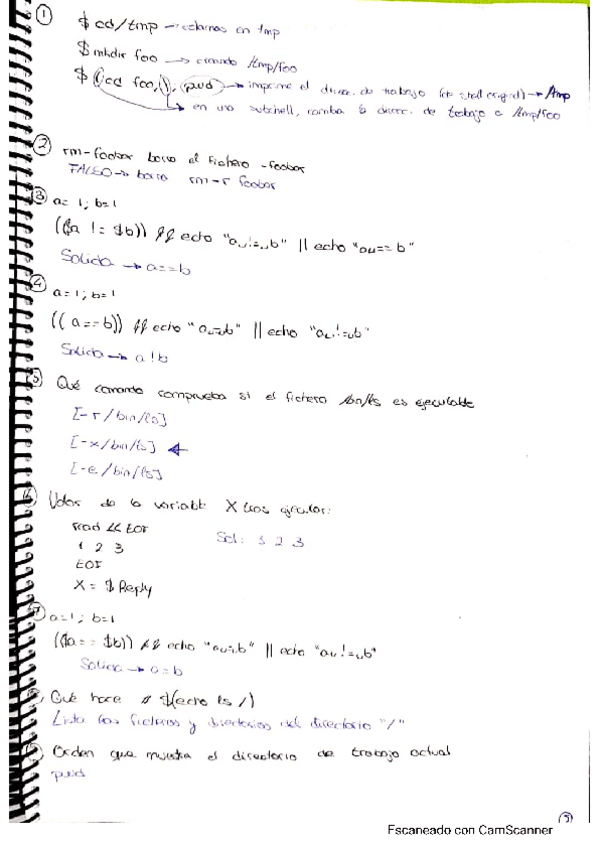 ① $ cd /tmp → estamos en tmp
$ mkdir foo → creando /tmp/foo
$ (cd foo;); pwd → imprime el direc. de trabajo → /tmp
→ en una subshell, cambia la direc. de trabajo a /tmp/foo
② rm -foobar borra el fichero -foobar
FALSO → borra rm -r foobar
③ a=1; b=1
(($a != $b)) && echo "a␣!=␣b" || echo "a␣==b"
Salida → a==b
④ a=1; b=1
((a==b)) && echo "a␣=␣b" || echo "a␣!=␣b"
Salida → a!b
⑤ Qué comando comprueba si el fichero /bin/ls es ejecutable
[-r /bin/ls]
[-x /bin/ls] ←
[-e /bin/ls]
Valor de la variable X tras ejecutar:
read << EOF
1 2 3
EOF
X = $Reply
Sol: 1 2 3
a=1; b=1
(($a == $b)) && echo "a␣=␣b" || echo "a␣!=␣b"
Salida → a=b
Qué hace $ $(echo ls /)
Lista los ficheros y directorios del directorio "/"
Orden que muestra el directorio de trabajo actual
pwd
Escaneado con CamScanner